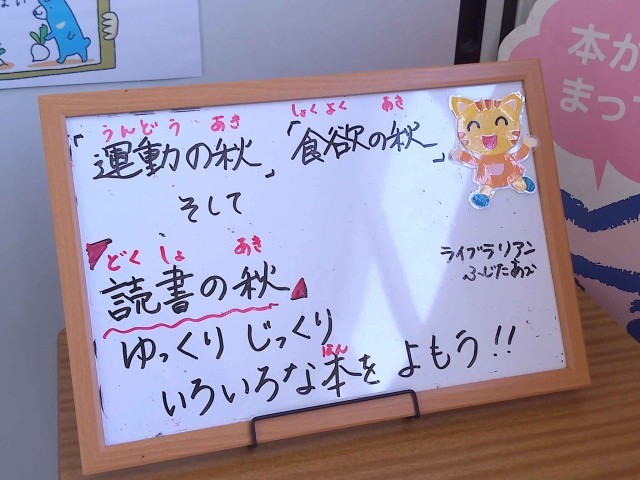 うんどう あき しょくよく あき
「運動の秋」「食欲の秋」
そして
どくしょ あき
読書の秋
ライブラリアン
ふじたあべ
ゆっくり じっくり
ほん
いろいろな本をよもう!!
本が
まって